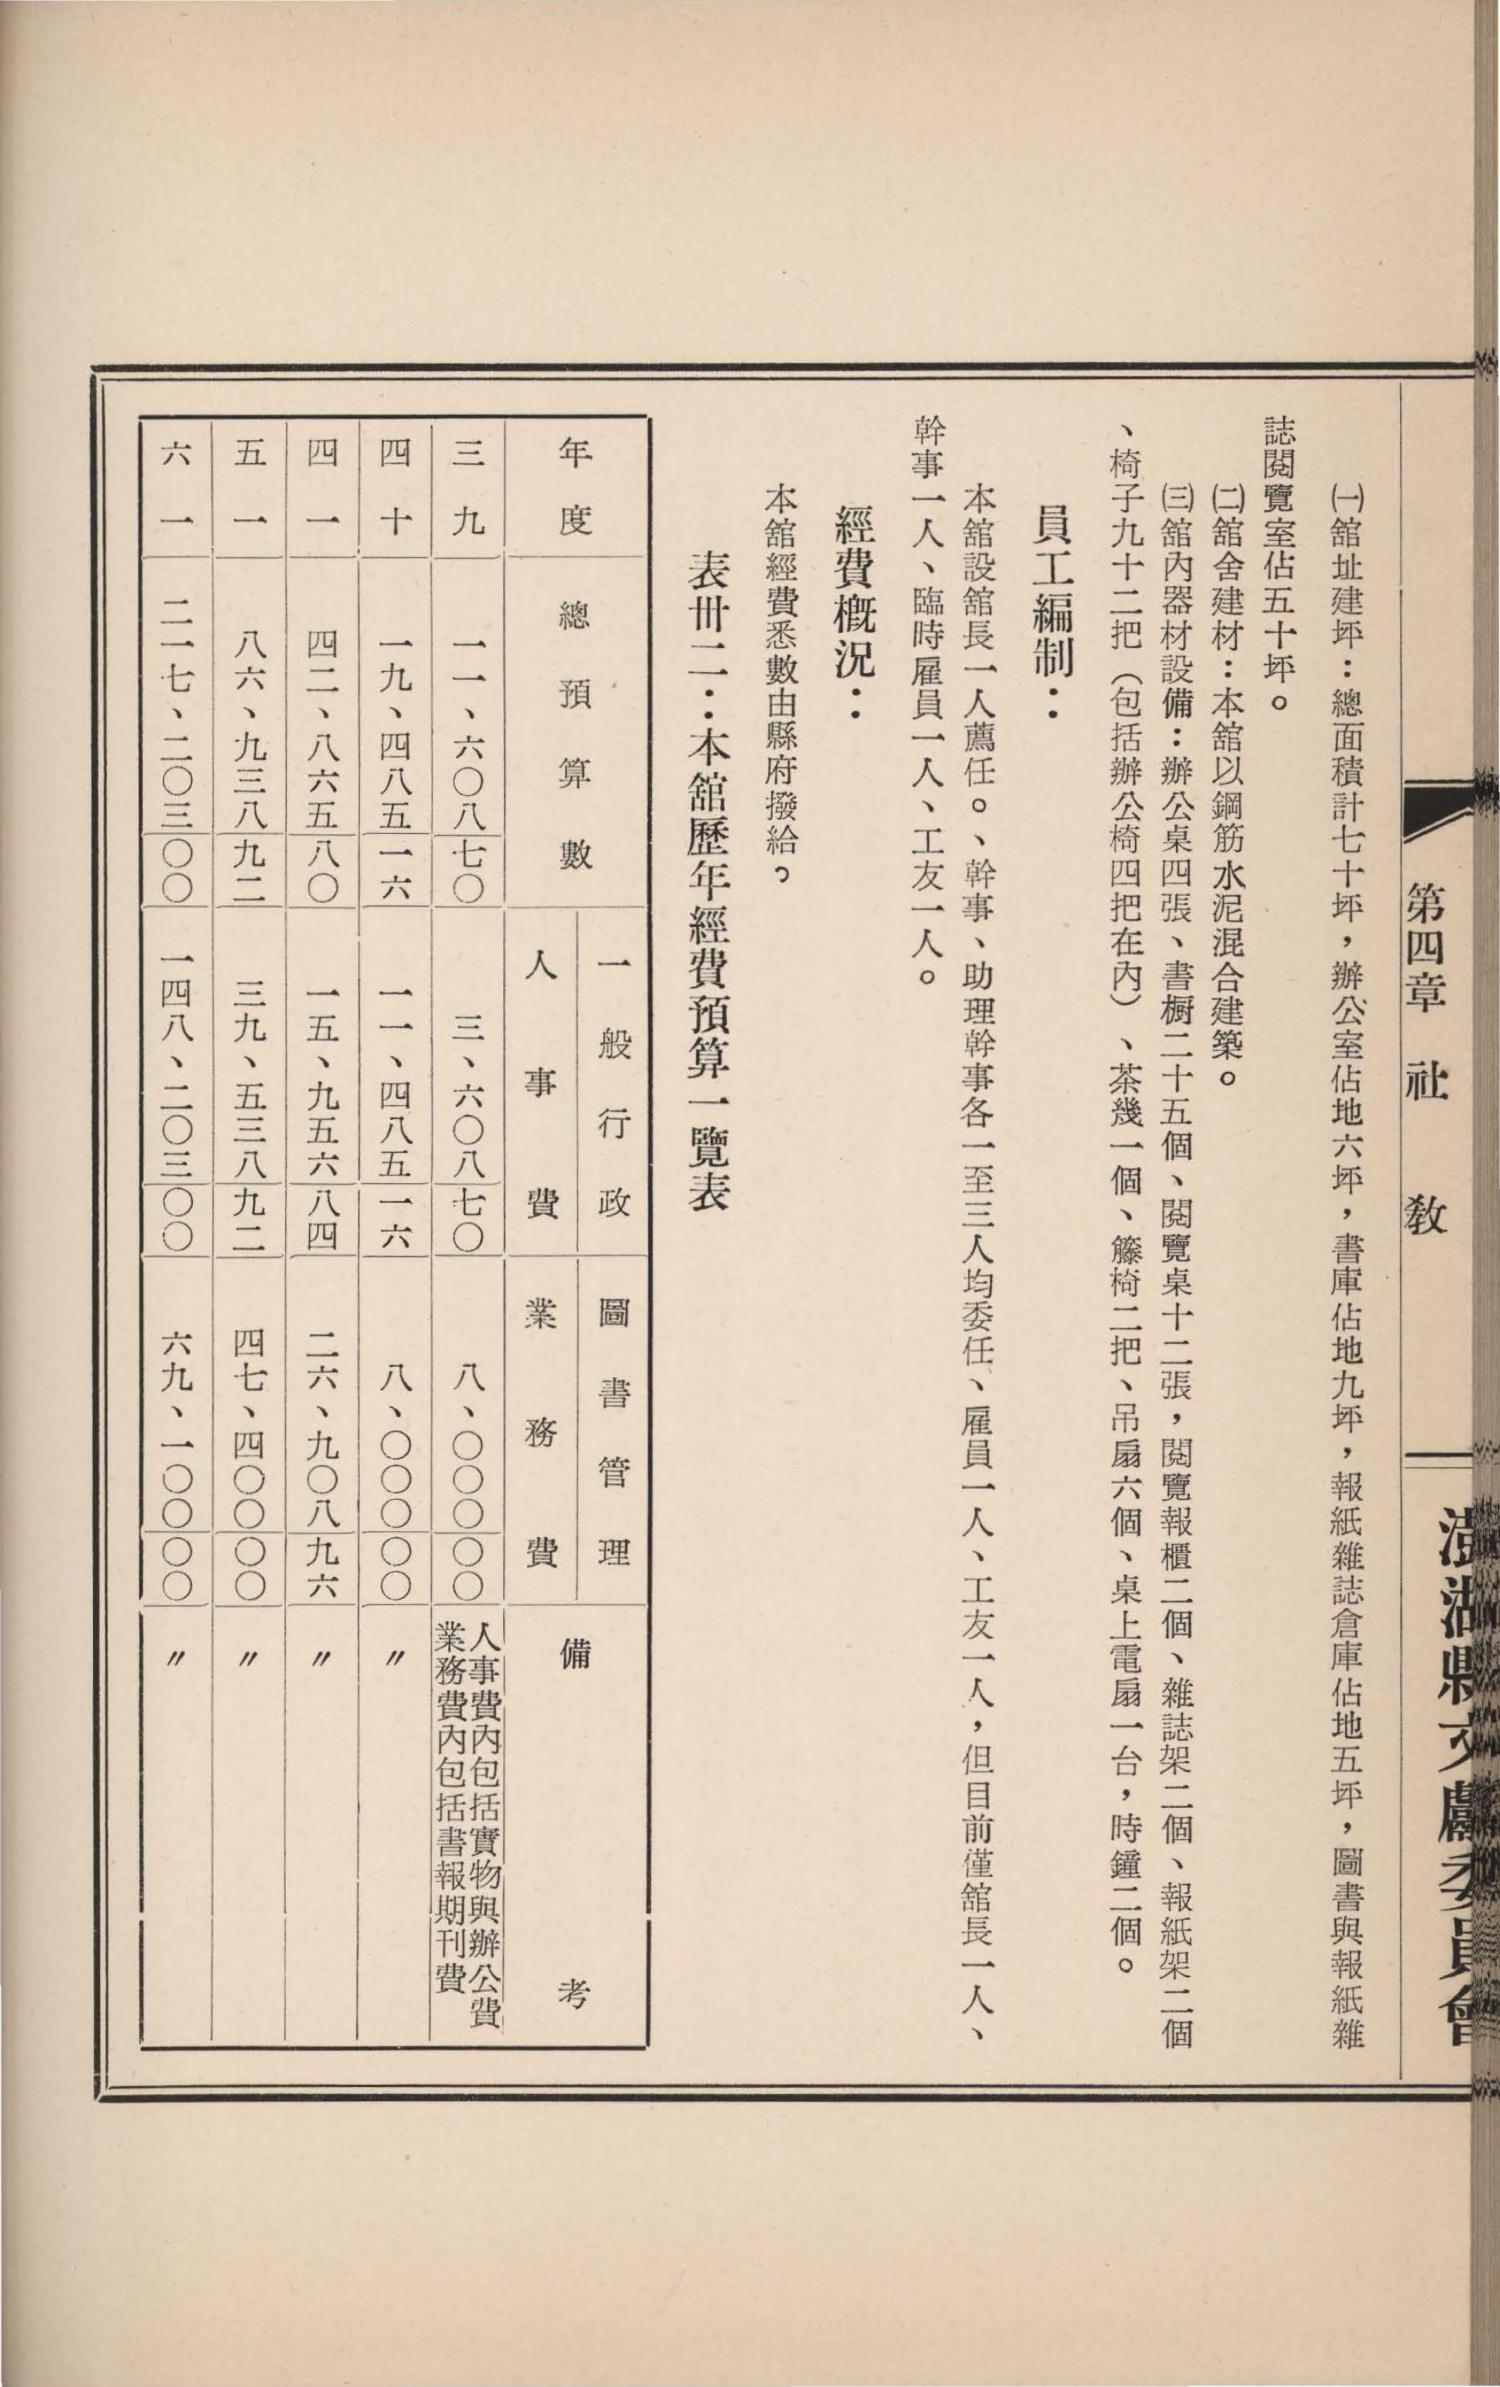 澎湖縣文獻委員會
第四章　社　教
㈠舘址建坪：總面積計七十坪，辦公室佔地六坪，書庫佔地九坪，報紙雜誌倉庫佔地五坪，圖書與報紙雜
誌閱覽室佔五十坪。
㈡舘舍建材：本舘以鋼筋水泥混合建築。
㈢舘內器材設備：辦公桌四張、書櫥二十五個、閱覽桌十二張，閱覽報櫃二個、雜誌架二個、報紙架二個
、椅子九十二把（包括辦公椅四把在內）、茶幾一個、籐椅二把、吊扇六個、桌上電扇一台，時鐘二個。
員工編制：
本舘設舘長一人薦任。、幹事、助理幹事各一至三人均委任、雇員一人、工友一人，但目前僅舘長一人、
幹事一人、臨時雇員一人、工友一人。
經費概況：
本舘經費悉數由縣府撥給。
表卅二：本舘歷年經費預算一覽表
年度　總預算數　一般行政　圖書管理　備考
人事費　業務費
三九　一一、六〇八　七〇　三、六〇八　七〇　八、〇〇〇　〇〇　人事費內包括實物與辦公費
業務費內包括書報期刊費
四十　一九、四八五　一六　一一、四八五　一六　八、〇〇〇　〇〇　〃
四一　四二、八六五　八〇　一五、九五六　八四　二六、九〇八　九六　〃
五一　八六、九三八　九二　三九、五三八　九二　四七、四〇〇　〇〇　〃
六一　二一七、二〇三　〇〇　一四八、二〇三　〇〇　六九、一〇〇　〇〇　〃